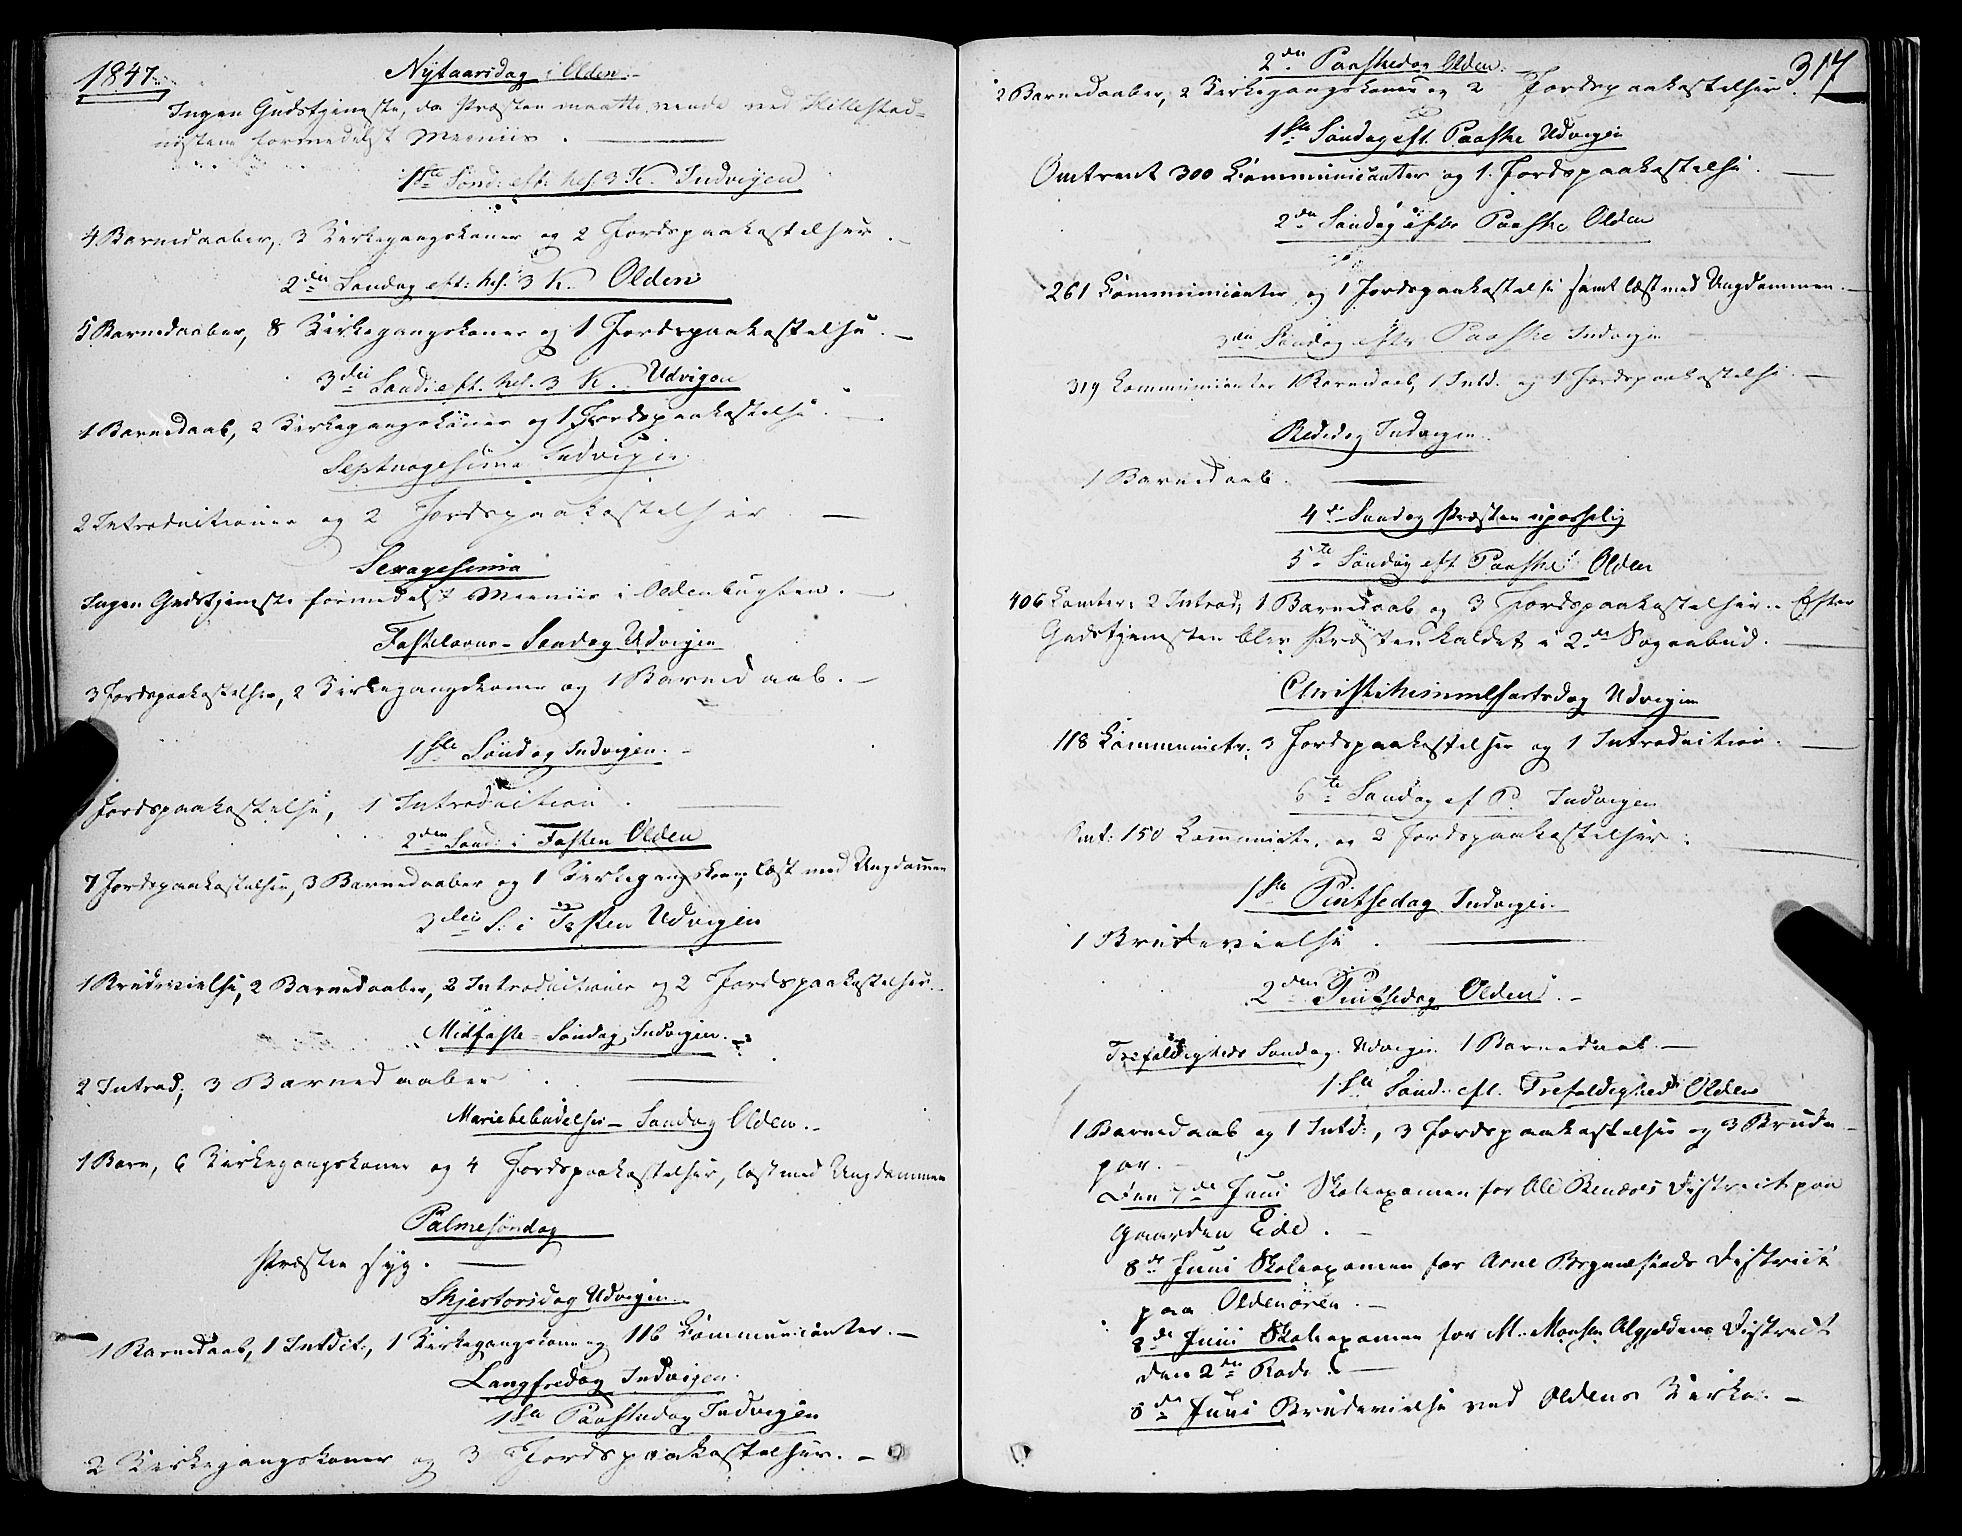 1847.
Nytaarsdag i Olden.
Ingen Gudstjeneste, da Præsten maatte vende ved Hillestad-
formedelst Meeniis.
1ste Sønd: eft: hel. 3 K. Indvigen
4 Barnedaaber, 3 Kirkegangskoner og 2 Jordspaakastelser.
2den Søndag eft: hel. 3 K. Olden
5 Barnedaaber, 8 Kirkegangskoner og 1 Jordspaakastelse.
3die Sønd: eft. hel. 3 K. Udvigen
1 Barnedaab, 2 Kirkegangskoner og 1 Jordspaakastelse.
Septuagesima Indvigen.
2 Introductioner og 2 Jordspaakastelser.
Sexagesima
Ingen Gudstjeneste formedelst Meeniis i Oldenbugten.
Fastelavns-Søndag Udvigen
3 Jordspaakastelser, 2 Kirkegangskoner og 1 Barnedaab.
1ste Søndag Indvigen.
1 Jordspaakastelse, 1 Introduction.
2den Sønd: i Fasten Olden
7 Jordspaakastelser, 3 Barnedaaber og 1 Kirkegangskone, læst med Ungdommen
3die S: i Fasten Udvigen
1 Brudevielse, 2 Barnedaaber, 2 Introductioner og 2 Jordspaakastelser.
Midfaste-Søndag, Indvigen.
2 Introd; 3 Barnedaaber.
Mariebebudelses-Søndag Olden.
1 Barn, 6 Kirkegangskoner og 4 Jordspaakastelser, læst med Ungdommen
Palmesøndag
Præsten syg.
Skjertorsdag Udvigen.
1 Barnedaab, 1 Intdct:, 1 Kirkegangskone og 116 Communicanter.
Langfredag Indvigen.
1ste Paaskedag Indvigen
2 Kirkegangskoner og 3 Jordspaakastelser.
317
2den Paaskedag Olden.
2 Barnedaaber, 2 Kirkegangskoner og 2 Jordspaakastelser.
1ste Søndag eft. Paaske Udvigen
Omtrent 300 Communicanter og 1 Jordspaakastelse.
2den Søndag efter Paaske Olden
261 Communicanter og 1 Jordspaakastelse samt læst med Ungdommen.
3die Søndag efter Paaske Indvigen
319 Communicanter 1 Barnedaab, 1 Intd. og 1 Jordspaakastelse.
Bededag Indvigen.
1 Barnedaab.
4de Søndag Præsten upasselig
5te Søndag eft Paaske Olden
406 Comter: 2 Introd, 1 Barnedaab og 3 Jordspaakastelser. Efter
Gudstjenesten blev Præsten kaldet i 2de Sognebud.
Christihimmelfartsdag Udvigen
118 Communictr. 3 Jordspaakastelser og 1 Introduction.
6te Søndag ef P. Indvigen
Omt: 150 Communicte. og 2 Jordspaakastelser.
1ste Pintsedag Indvigen.
1 Brudevielse.
2den Pintsedag Olden.
Trefoldigheds Søndag. Udvigen 1 Barnedaab.
1ste Sønd. eft. Trefoldighed Olden
1 Barnedaab og 1 Intd:, 3 Jordspaakastelser og 3 Brude-
par.
Den 7de Juni Skoleexamen for Ole District paa
Gaarden Eide.
8de Juni Skoleexamen for Arne District
paa Oldenøren.
8de Juni Skoleexamen for M. Monsen District
den 2den Rode.
8de Juni Brudevielse ved Oldens Kirke.